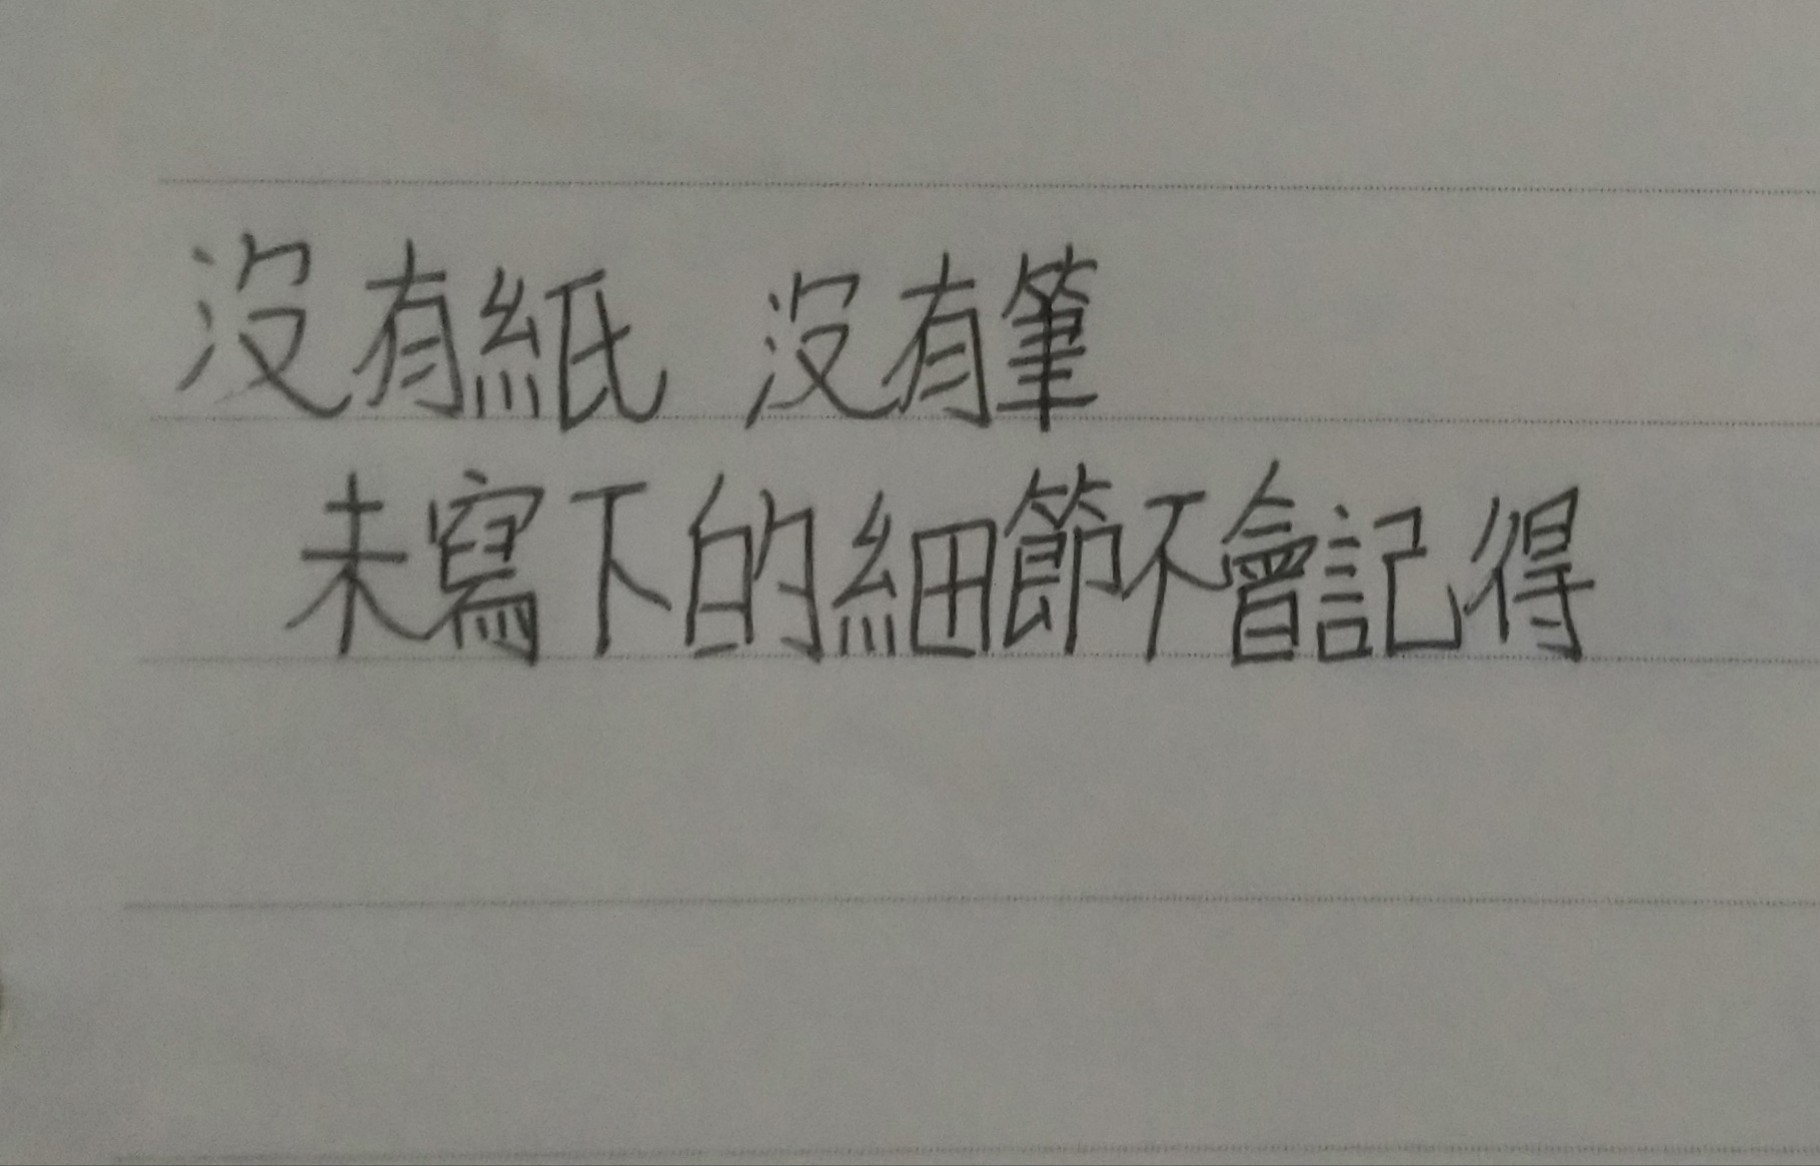 沒有紙 沒有筆
未寫下的細節不會記得